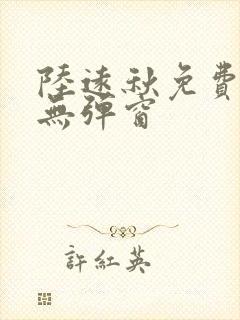 陸遠秋免費
無彈窗
許紅英